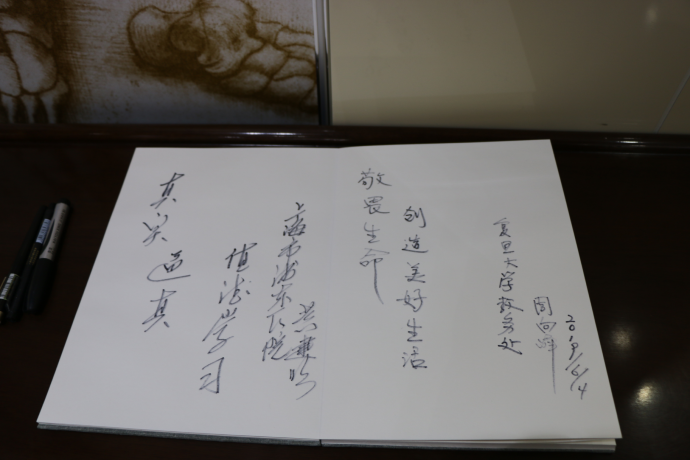 真实逼真
值得学习
上海市浦东医院
敬畏生命
创造美好生活
复旦大学教务处
周向峰
2019/6/4